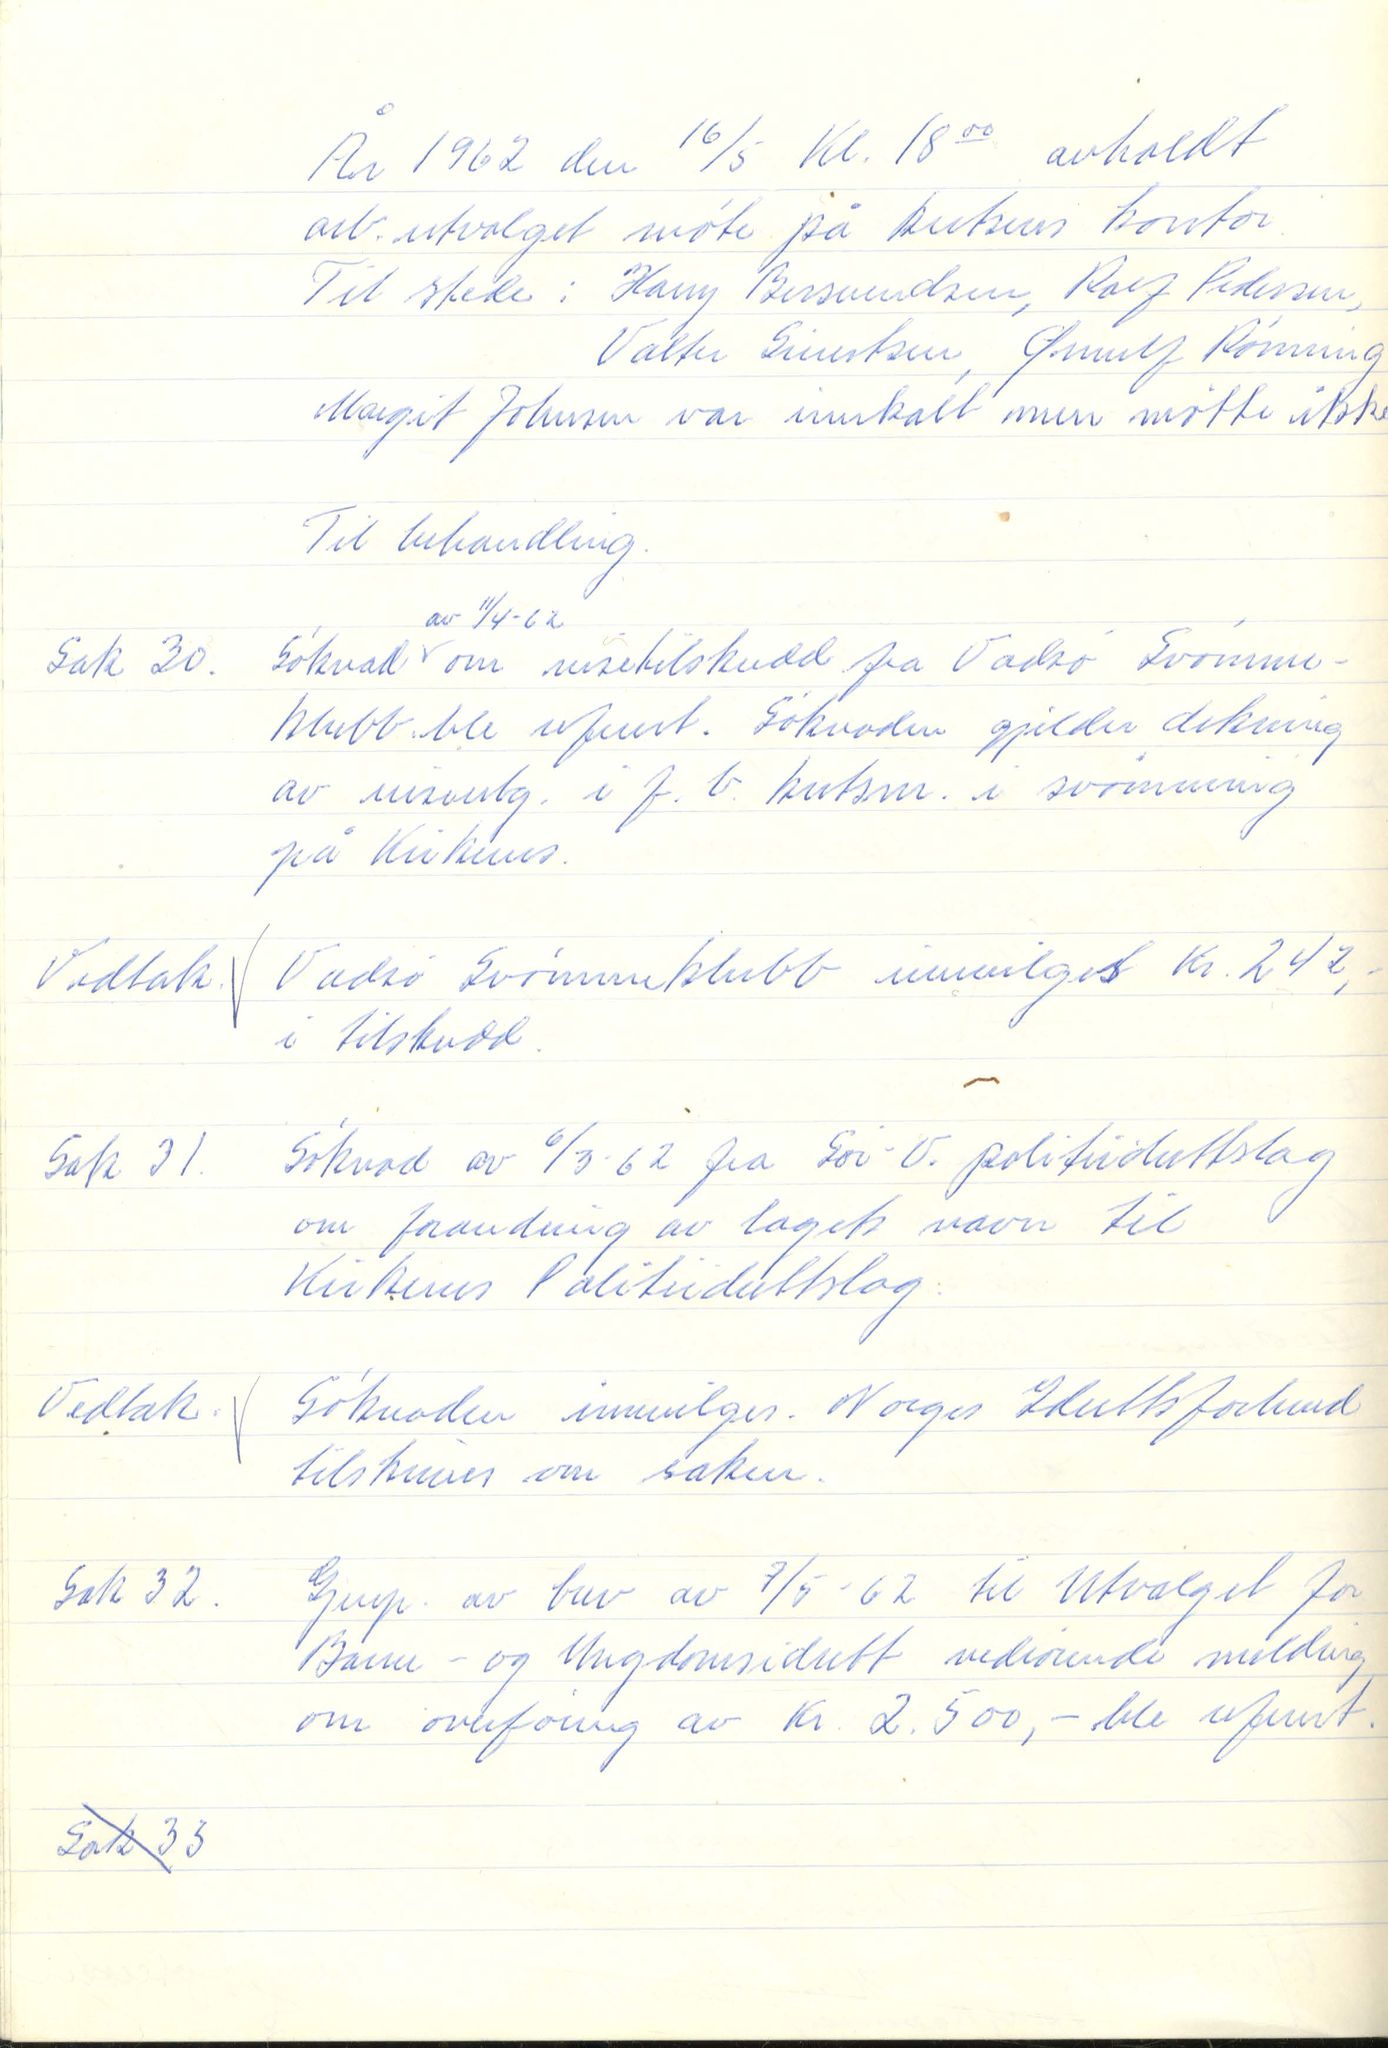 År 1962 den 16/5 Kl. 18 00 avholdt
arb. utvalget möte på kretsens kontor.
Til stede: Harry Bersvendsen, Rolf Pedersen,
Valter Einertsen, Ørnulf Rönning
Margit Johnsen var innkalt men mötte ikke
Til behandling.
av 11/4-62
Sak 30. Söknad om reisetilskudd fra Vadsö Svömme-
klubb ble referert. Söknaden gjelder dekning
av reiseutg. i f. b. kretsm. i svömming
på Kirkenes.
Vedtak. Vadsö Svömmeklubb innvilges Kr. 242,-
i tilskudd.
Sak 31. Söknad av 6/3-62 fra Sör-V. politiidrettslag
om forandring av lagets navn til
Kirkenes Politiidrettslag.
Vedtak. Söknaden innvilges. Norges Idrettsforbund
tilskrives om saken.
Sak 32. Gjenp. av brev av 7/5-62 til Utvalget for
Barne- og Ungdomsidrett vedrörende melding
om overföring av Kr. 2.500,- ble referert.
Sak 33